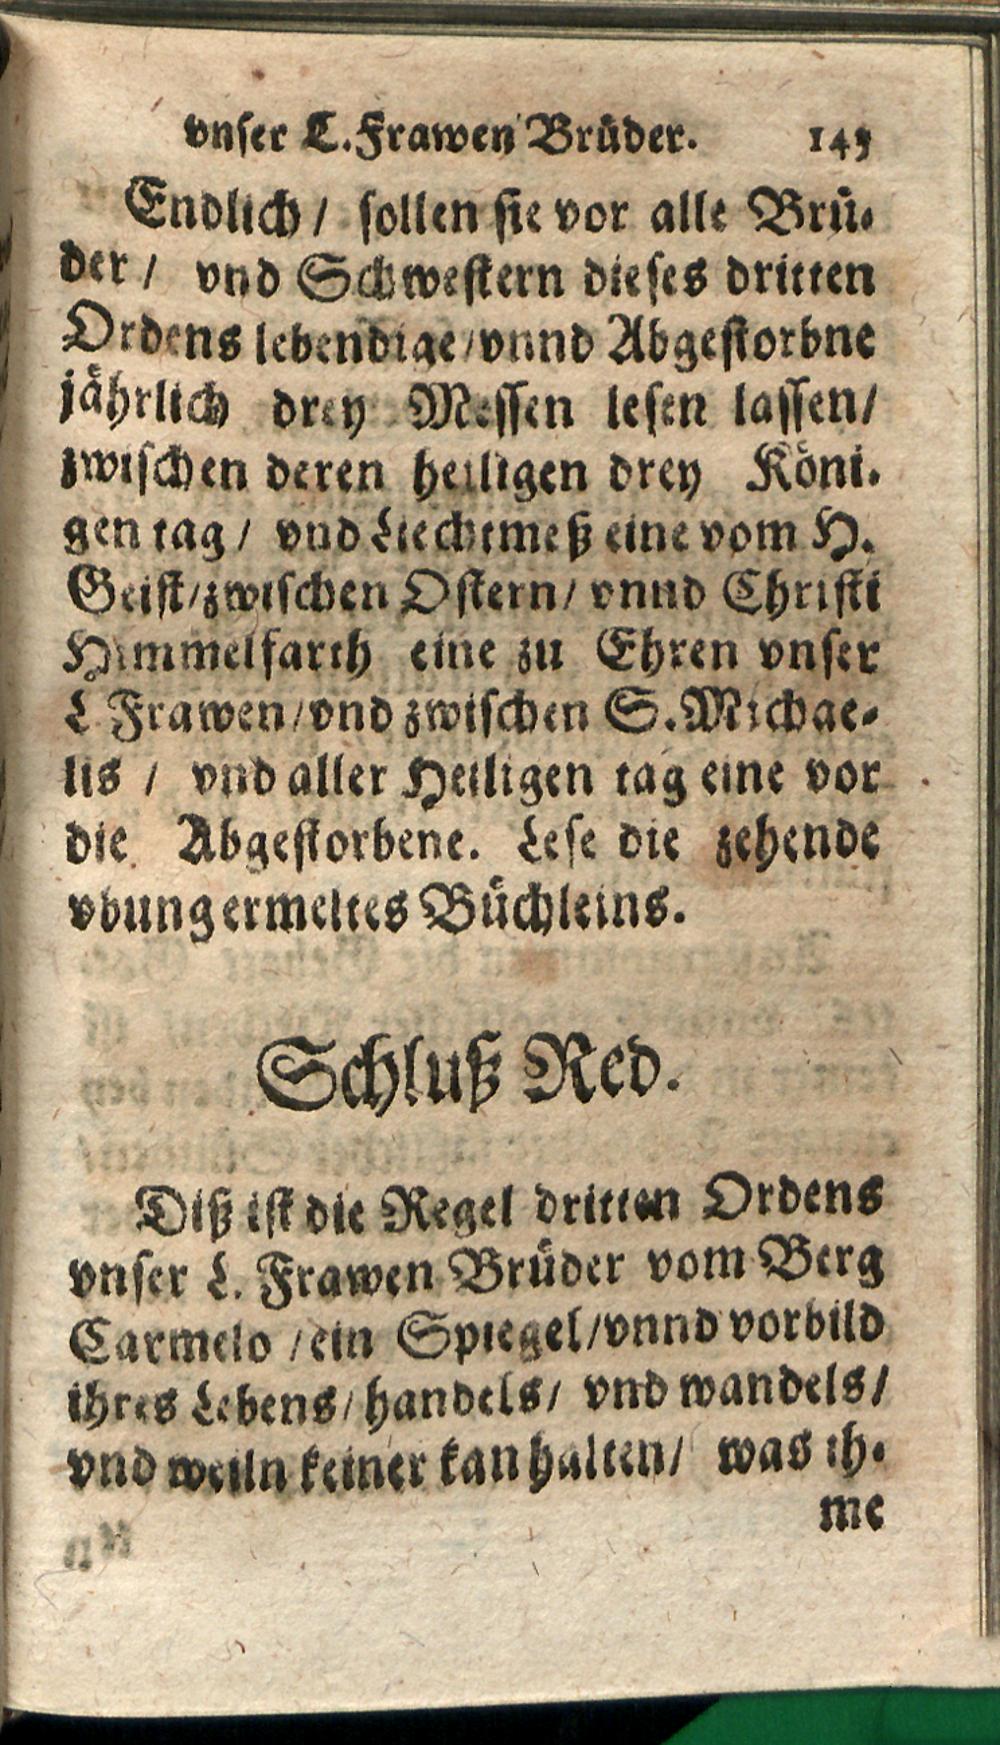 vnser L. Frawen Brüder. 145
Endlich / sollen sie vor alle Brü-
der / vnd Schwestern dieses dritten
Ordens lebendige / vnnd Abgestorbne
jährlich drey Messen lesen lassen/
zwischen deren heiligen drey Köni-
gen tag / vnd Liechtmeß eine vom H.
Geist / zwischen Ostern / vnnd Christi
Himmelfarth eine zu Ehren vnser
L. Frawen / vnd zwischen S. Michae-
lis / vnd aller Heiligen tag eine vor
die Abgestorbene. Lese die zehende
vbung ermeltes Büchleins.
Schluß Red.
Diß ist die Regel dritten Ordens
vnser L. Frawen Brüder vom Berg
Carmelo / ein Spiegel / vnnd vorbild
ihres Lebens / handels / vnd wandels /
vnd weiln keiner kan halten / was ih-
me